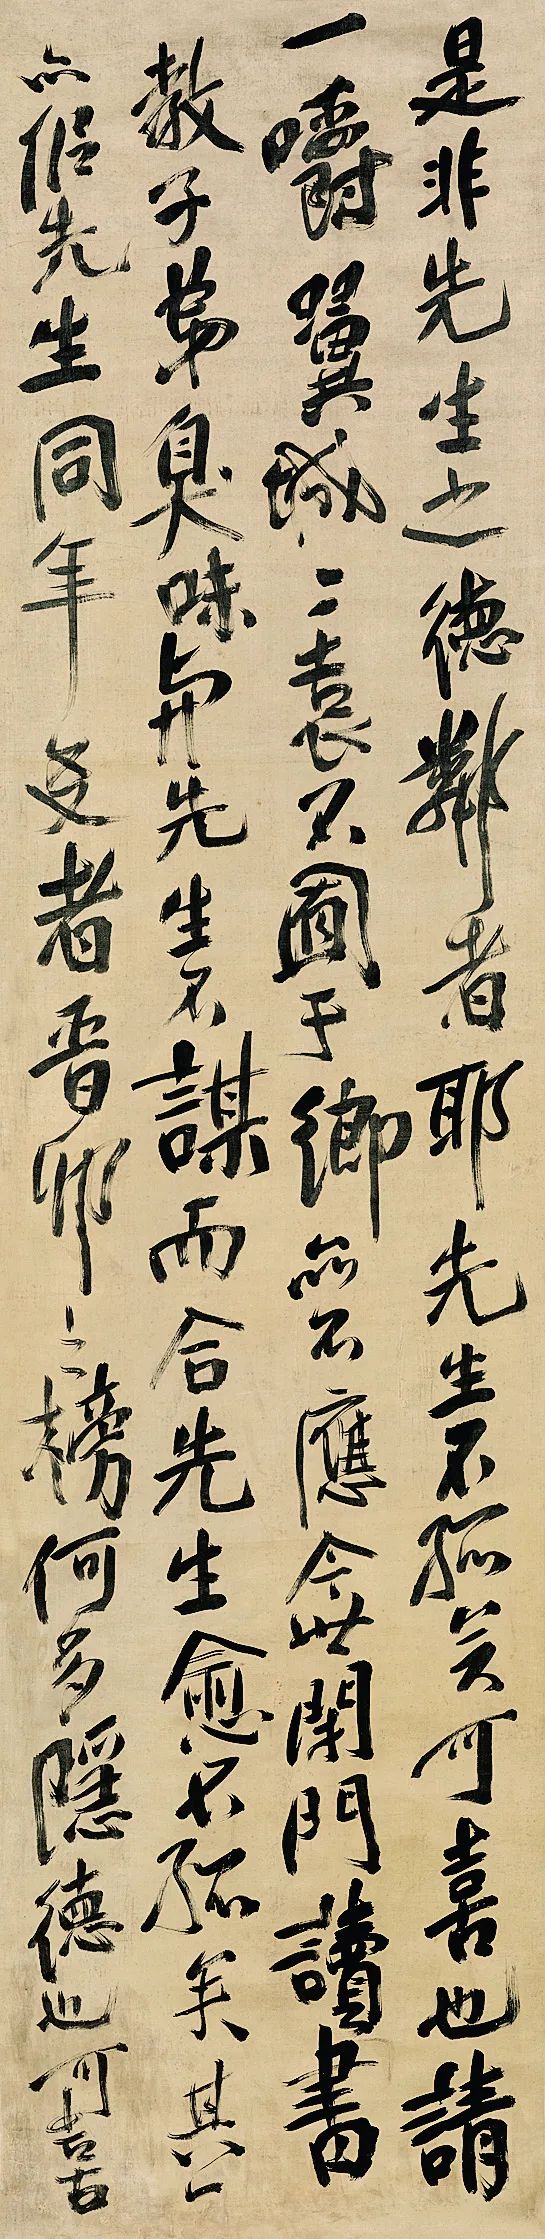 是非先生之德鄰者耶先生不孤矣可喜也請
一嚼翼城二袁不圃于鄉亦不應今世閉門讀書
教子弟臭味與先生不謀而合先生愈不孤矣其一
亦侶先生同年友者晋卯之榜何多隱德也可喜